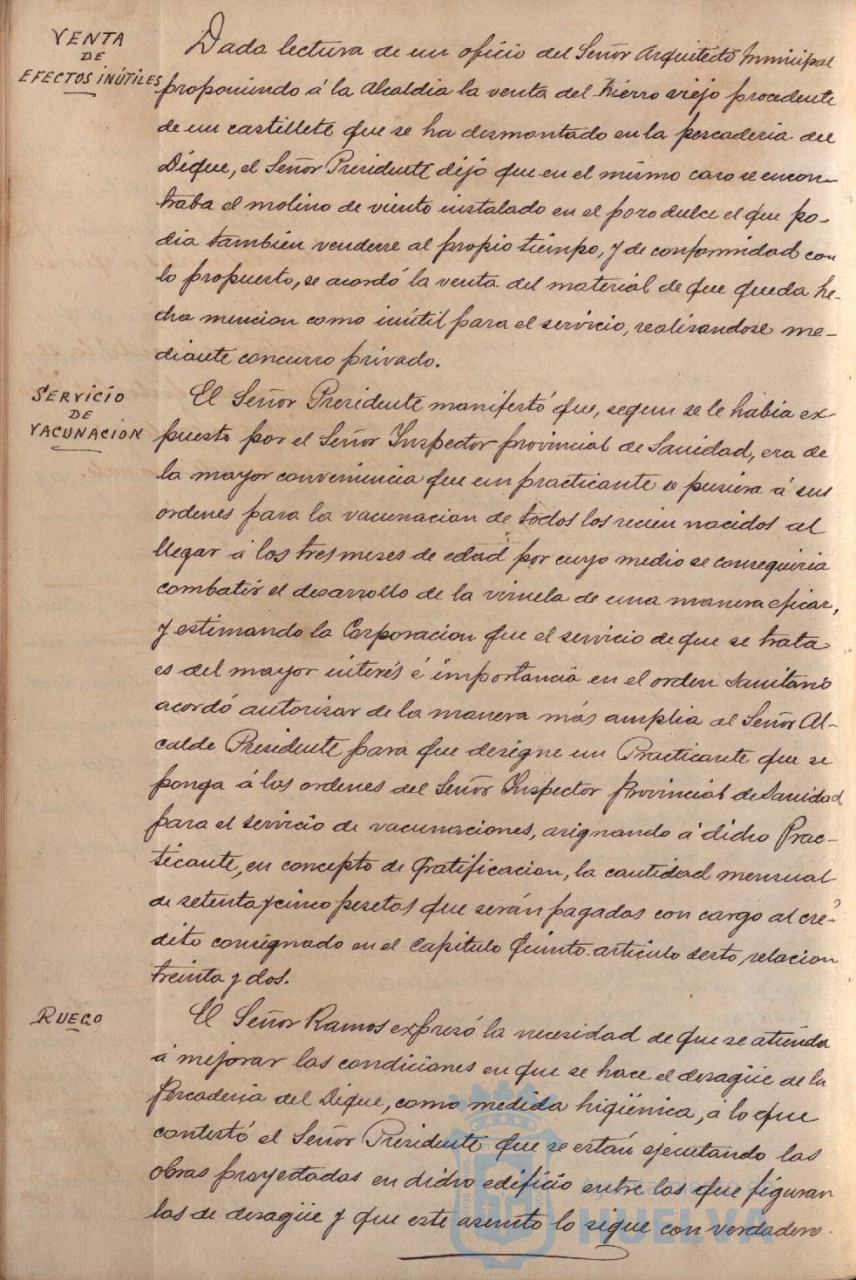 VENTA
DE
EFECTOS INÚTILES
Dada lectura de un oficio del Señor Arquitecto Municipal
proponiendo á la Alcaldia la venta del hierro viejo procedente
de un castillete que se ha desmontado en la pescaderia del
Dique, el Señor Presidente dijo que en el mismo caso se encon-
traba el molino de viento instalado en el pozo dulce el que po-
dia tambien venderse al propio tiempo, y de conformidad con
lo propuesto, se acordó la venta del material de que queda he-
cha mencion como inútil para el servicio, realizandose me-
diante concurso privado.
SERVICIO
DE
VACUNACIÓN
El Señor Presidente manifestó que, segun se le habia ex-
puesto por el Señor Inspector provincial de Sanidad, era de
la mayor conveniencia que un practicante se pusiera á sus
ordenes para la vacunacion de todos los recien nacidos al
llegar á los tres meses de edad por cuyo medio se conseguiria
combatir el desarrollo de la viruela de una manera eficaz,
y estimando la Corporacion que el servicio de que se trata
es del mayor interés é importancia en el orden Sanitario
acordó autorizar de la manera más amplia al Señor Al-
calde Presidente para que designe un Practicante que se
ponga á las ordenes del Señor Inspector Provincial de Sanidad
para el servicio de vacunaciones, asignando á dicho Prac-
ticante, en concepto de Gratificacion, la cantidad mensual
de setenta y cinco pesetas que serán pagadas con cargo al cré-
dito consignado en el Capitulo Quinto articulo sesto, relacion
treinta y dos.
RUEGO
El Señor Ramos expresó la necesidad de que se atienda
á mejorar las condiciones en que se hace el desagüe de la
Pescaderia del Dique, como medida higiénica, á lo que
contestó el Señor Presidente que se están ejecutando las
obras proyectadas en dicho edificio entre las que figuran
las de desagüe y que este asunto lo sigue con verdadero
HUELVA